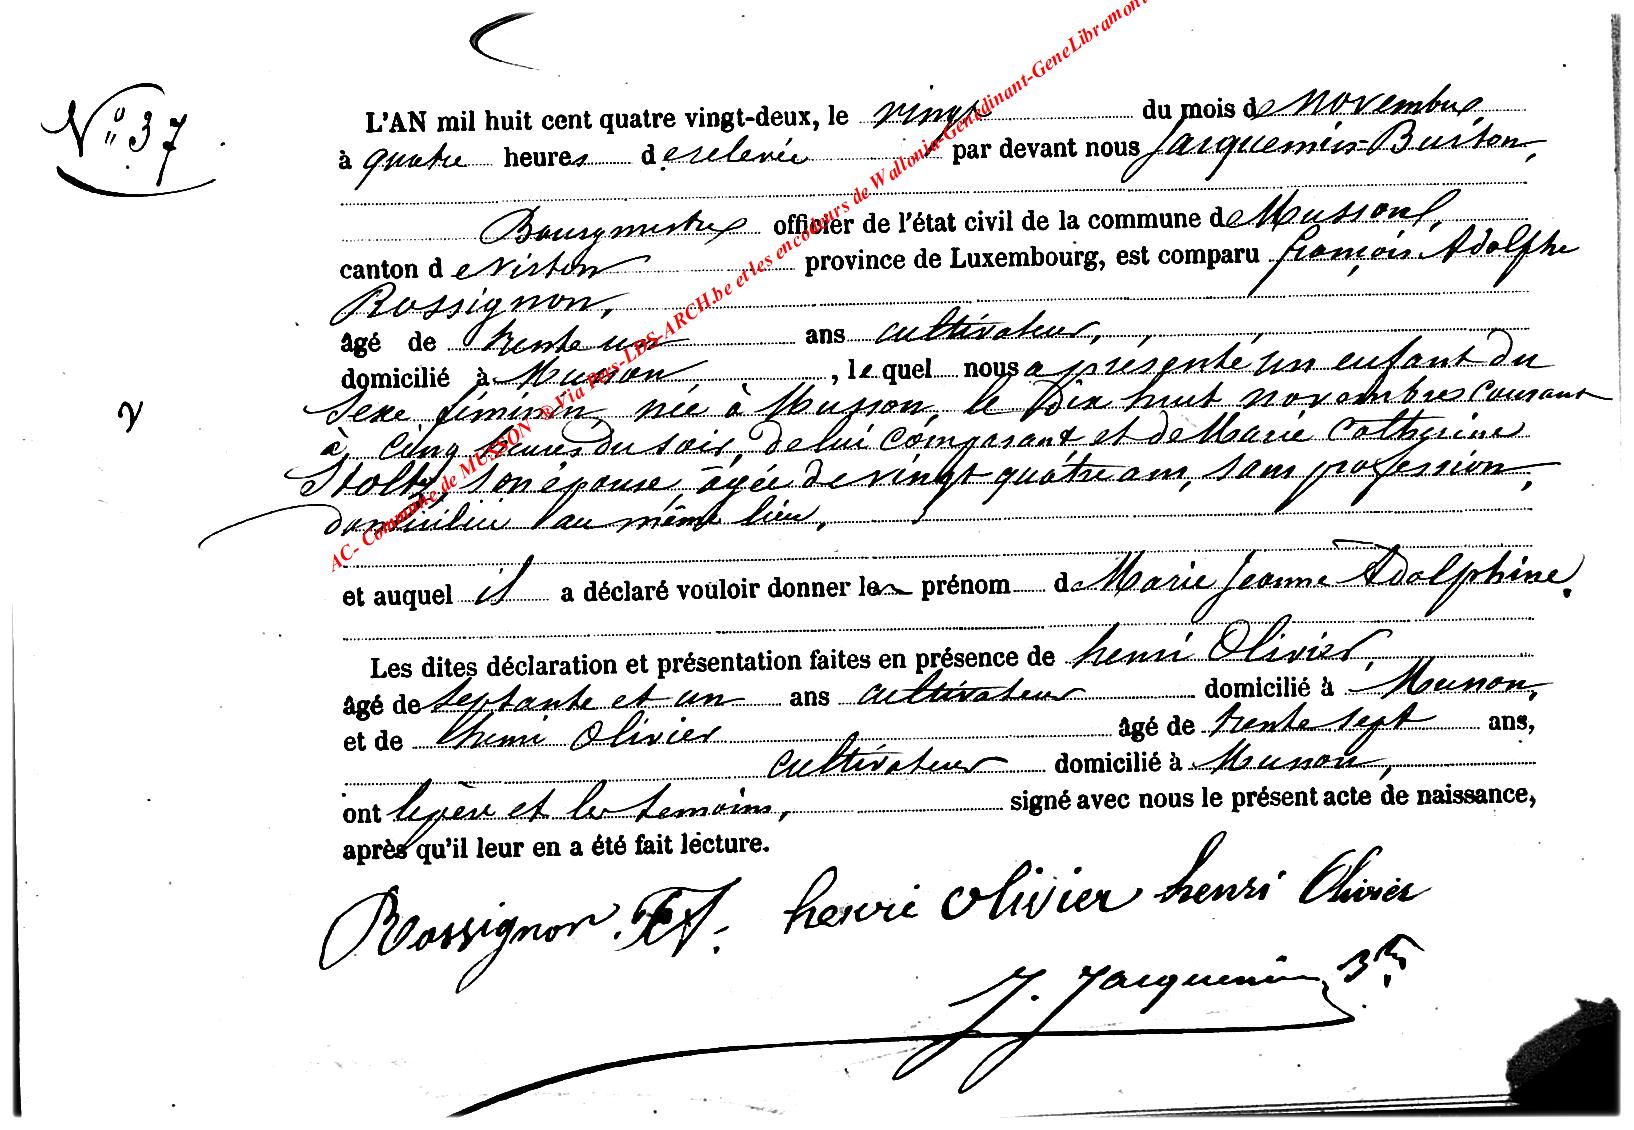 N° 37
L'AN mil huit cent quatre vingt-deux, le vingt du mois de novembre
à quatre heures de relevée par devant nous Jacquemin-Buriton,
Bourgmestre officier de l'état civil de la commune de Musson,
canton de Virton province de Luxembourg, est comparu françois Adolphe
Rossignon,
âgé de trente un ans cultivateur,
domicilié à Musson, le quel nous a présenté un enfant du
sexe féminin, née à Musson, le dix huit novembre courant
à cinq heures du soir, de lui comparant et de Marie Catherine
Stoltz, son épouse, âgée de vingt quatre ans, sans profession,
domiciliée au même lieu,
et auquel il a déclaré vouloir donner les prénom de Marie Jeanne Adolphine.
Les dites déclaration et présentation faites en présence de henri Olivier,
âgé de septante et un ans cultivateur domicilié à Musson,
et de henri Olivier âgé de trente sept ans,
cultivateur domicilié à Musson,
ont le père et les témoins, signé avec nous le présent acte de naissance,
après qu'il leur en a été fait lecture.
Rossignon. henri Olivier henri Olivier
J. Jacquemin
AC- Commune de MUSSON ® Via Pers-LDS-ARCH.be et les encodeurs de Wallonia-Genedinant-GeneLibramont